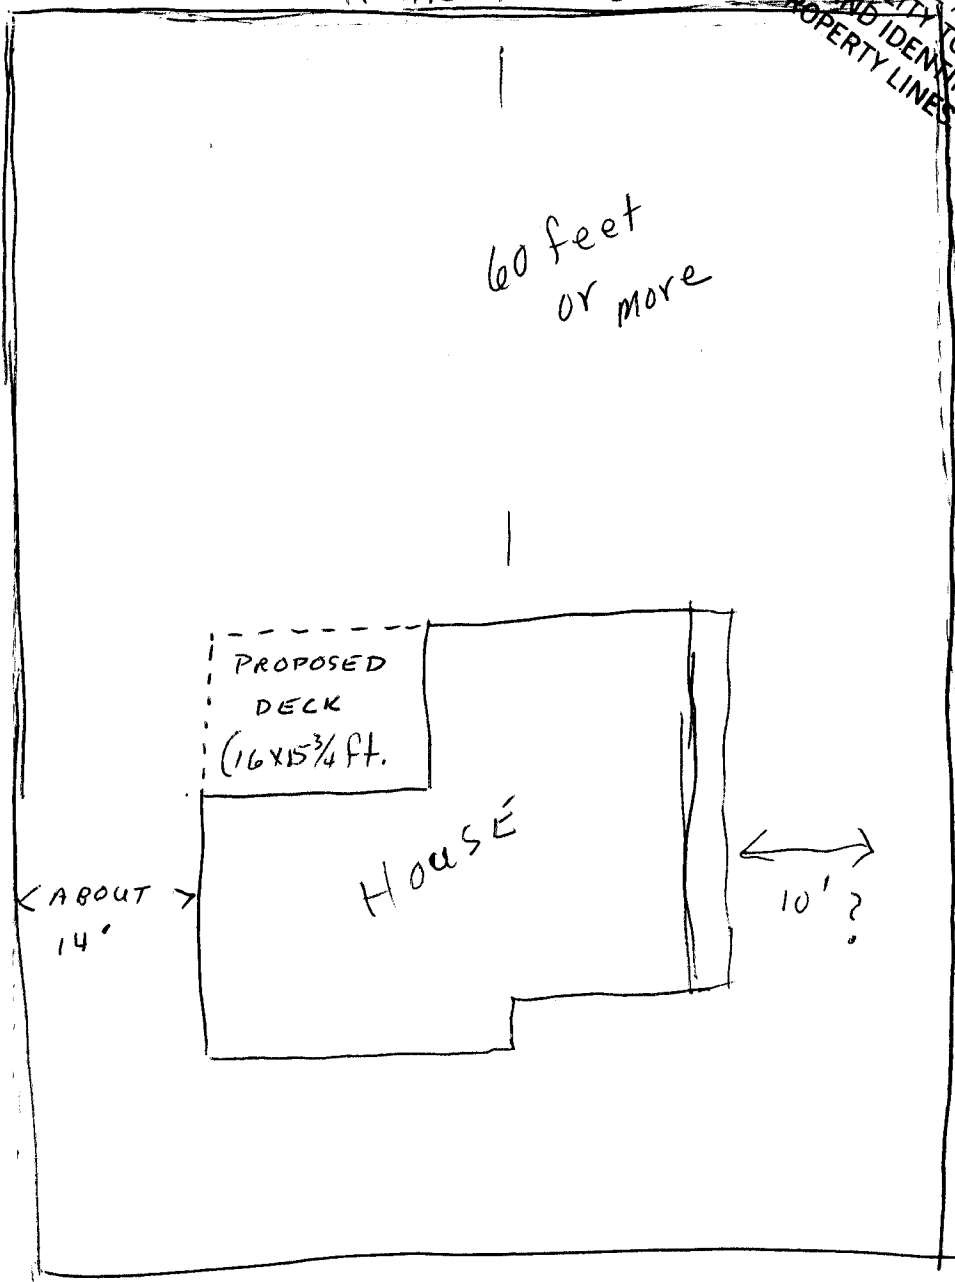 AND IDENTI
PROPERTY LINES
60 feet
or more
PROPOSED
DECK
(16 x 15 3/4 ft.
HOUSE
ABOUT
14'
10' ?